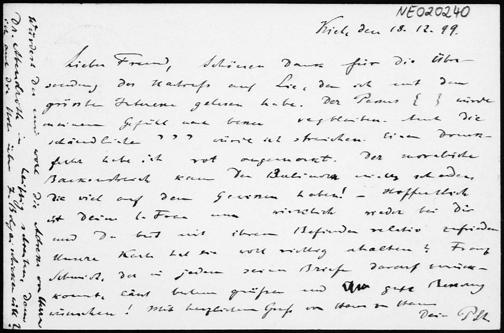 NE020240
Kiel, den 18.12.99.
Lieber Freund, Schönen Dank für die Über-
sendung des Nachrufs auf Lie, den ich mit dem
grössten Interesse gelesen habe. Der Passus { } würde
meinem Gefühl nach besser wegbleiben. Auch die
schändlichen ? ? ? würde ich streichen. Einen Druck-
fehler habe ich rot angemerkt. Der moralische
kann den nichts schaden,
die viel auf dem Gewissen haben! – Hoffentlich
ist Deine l. Frau nun wieder bei Dir
und Du bist mit ihrem Befinden relativ zufrieden
Unsere Karte hast Du wohl richtig erhalten? Franz
der in jedem seiner Briefe darauf zurück-
kommt, lässt grüßen und gute Besserung
wünschen! Mit herzlichem Gruß von Haus zu Haus
Dein
Würdest Du mir wohl die Adresse von Herrn
Dr. in Leipzig schreiben, damit
ich mit der